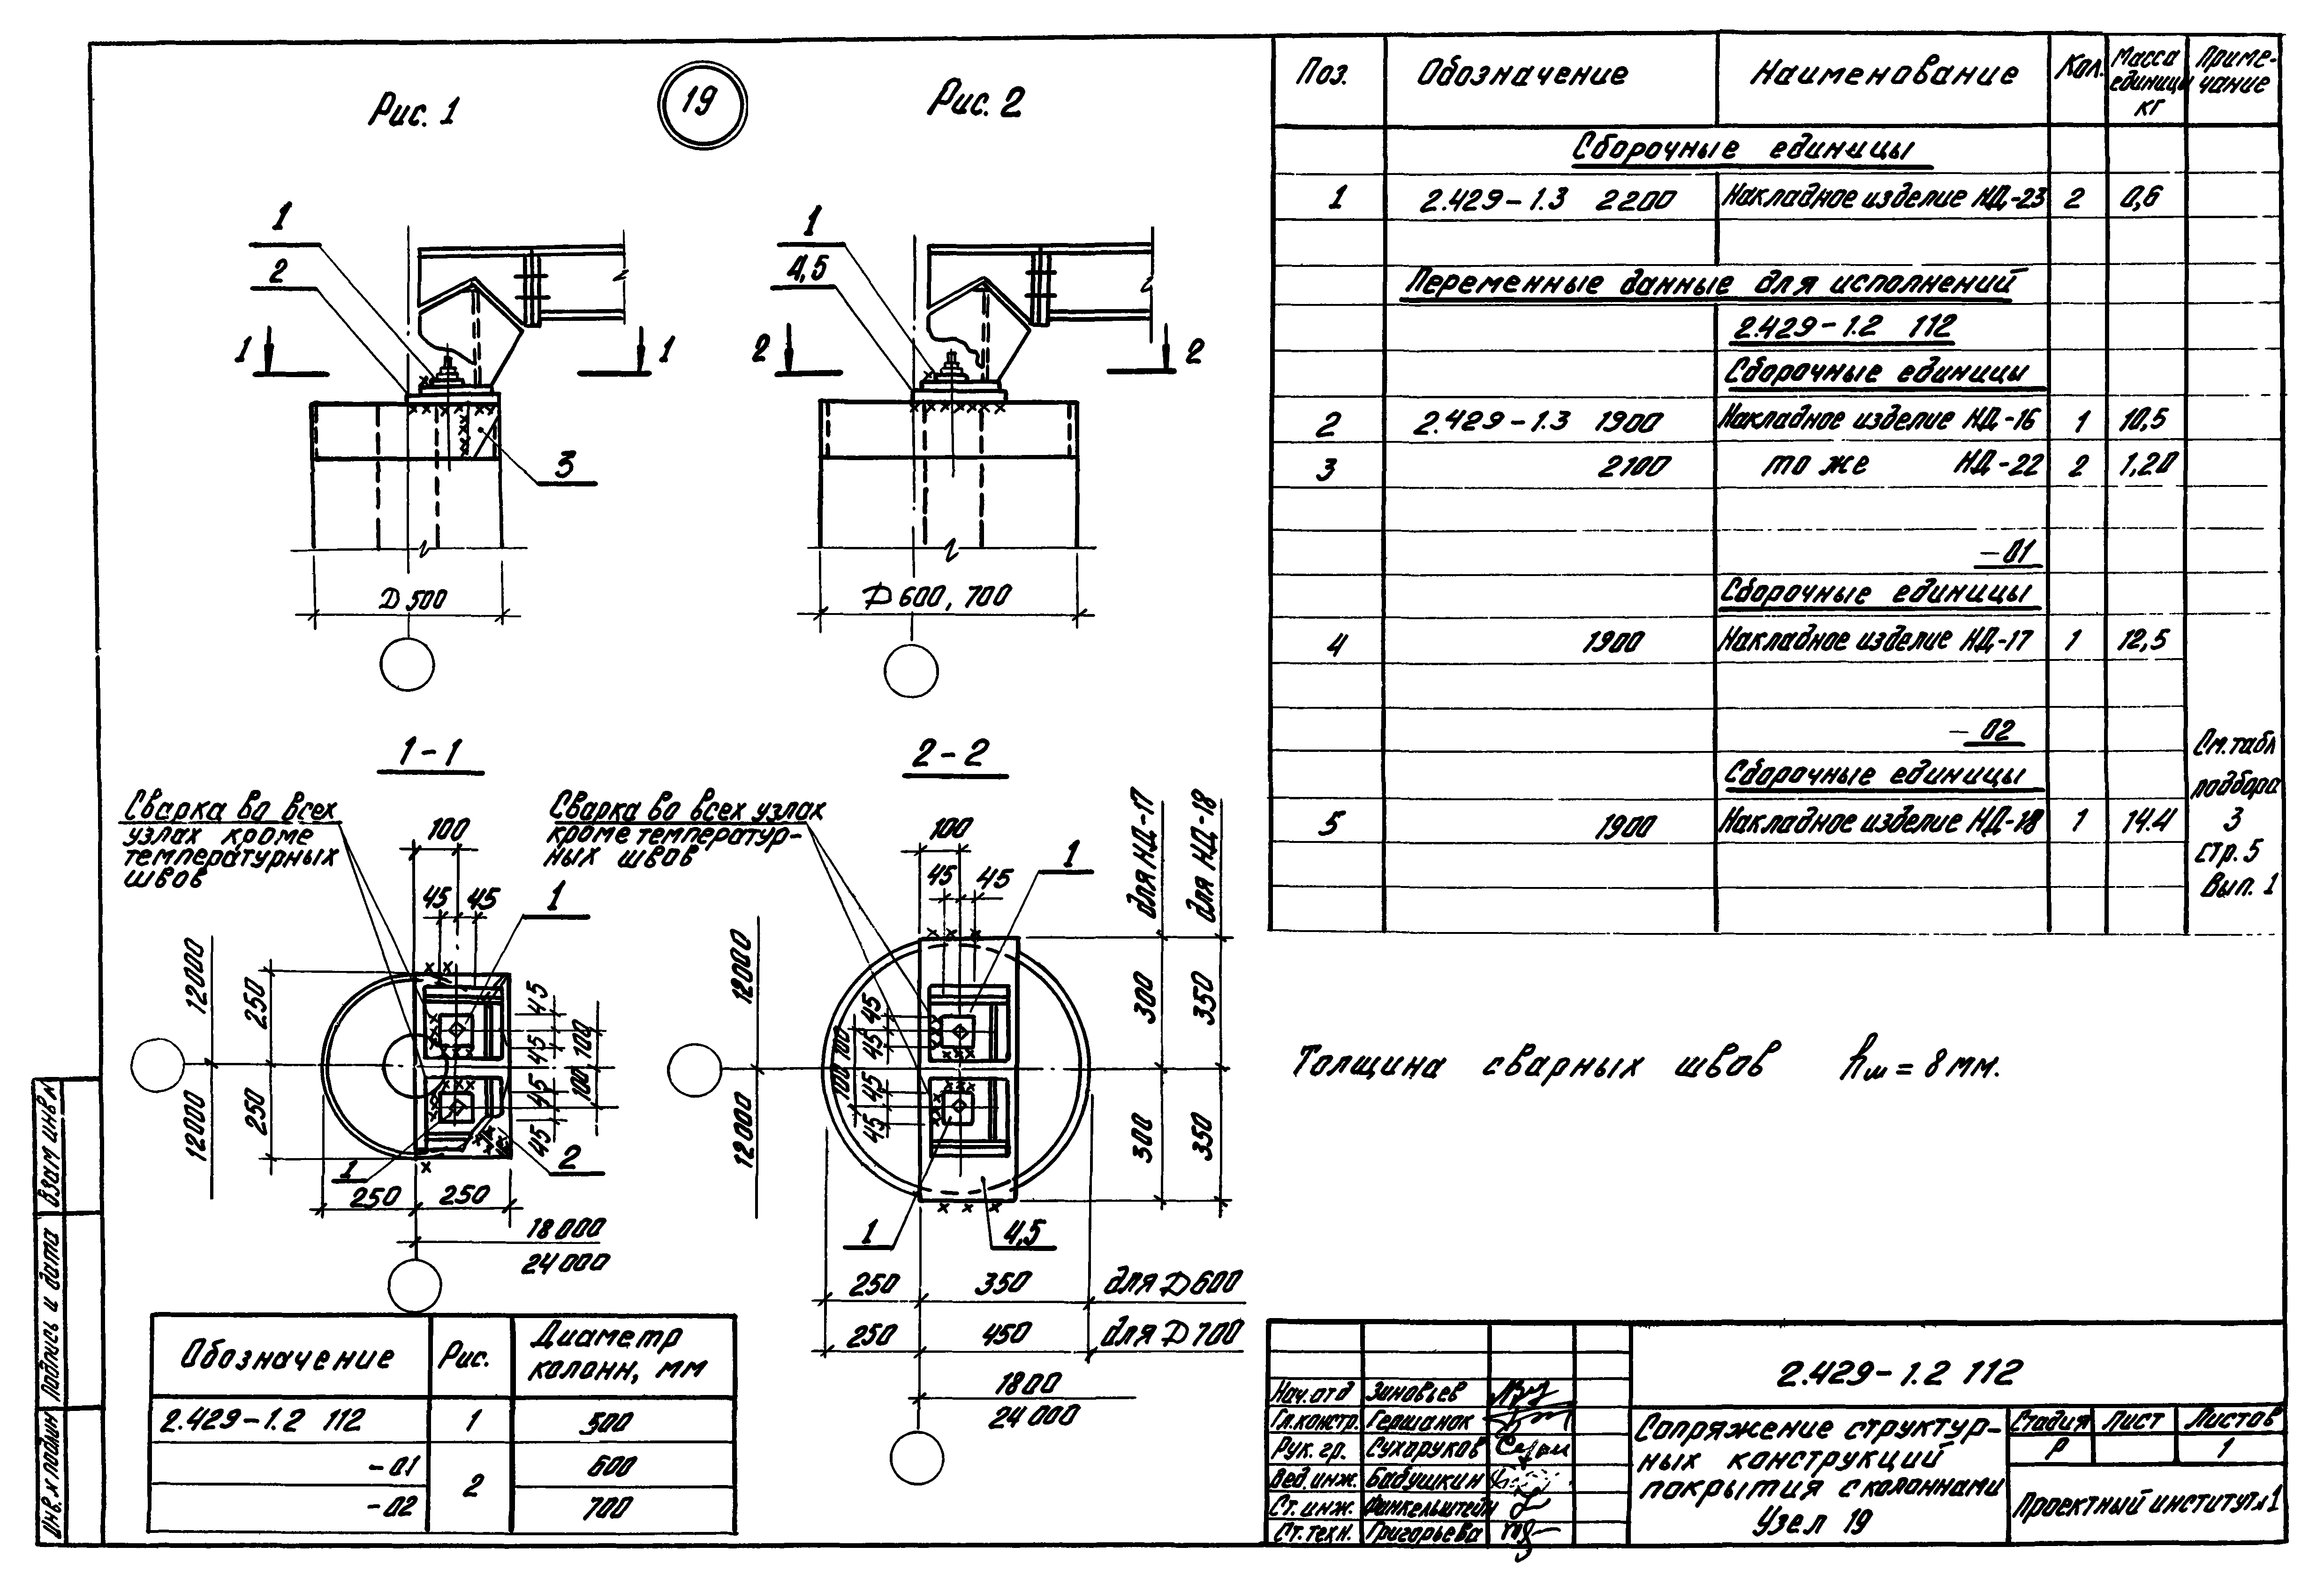 Рис. 1
19
Рис. 2
1
2
1
1
3
D 500
1
4,5
2
2
D 600, 700
1-1
Сварка во всех
узлах кроме
температурных
швов
100
45
45
1
12000
12000
250
250
45
45
100
45
45
100
1
2
250
250
18 000
24 000
2-2
Сварка во всех узлах
кроме температур-
ных швов
100
45
45
1
для НД-17
для НД-18
12000
12000
45
45
100
45
45
100
300
350
300
350
1
4,5
250
350
для D 600
250
450
для D 700
1800
24 000
Обозначение
Рис.
Диаметр
колонн, мм
2.429-1.2 112
1
500
-01
2
600
-02
700
Поз.
Обозначение
Наименование
Кол.
Масса
единицы
кг
Приме-
чание
Сборочные единицы
1
2.429-1.3 2200
Накладное изделие НД-23
2
0,6
Переменные данные для исполнений
2.429-1.2 112
Сборочные единицы
2
2.429-1.3 1900
Накладное изделие НД-16
1
10,5
3
2100
то же НД-22
2
1,20
-01
Сборочные единицы
4
1900
Накладное изделие НД-17
1
12,5
-02
Сборочные единицы
5
1900
Накладное изделие НД-18
1
14.4
См. табл
подбора
3
стр. 5
Вып. 1
Толщина сварных швов hш = 8 мм.
Нач. отд Зиновьев
Гл. констр. Гершанок
Рук. гр. Сухоруков
Вед. инж. Бабушкин
Ст. инж. Финкельштейн
Ст. техн. Григорьева
2.429-1.2 112
Сопряжение структур-
ных конструкций
покрытия с колоннами
Узел 19
Стадия
Лист
Листов
Р
1
Проектный институт №1
Взам инв №
Подпись и дата
Инв. № подлин